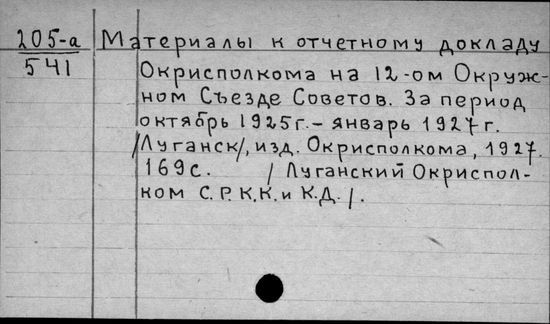 205-а Материалы к отчетному докладу
541
Окрисполкома на 12-ом Окруж-
ном Съезде Советов. За период
октябрь 1925г.- январь 1927г.
/Луганск/, изд. Окрисполкома, 1927.
169с. / Луганский Окриспол-
ком С.Р.К.К. и К.Д./.